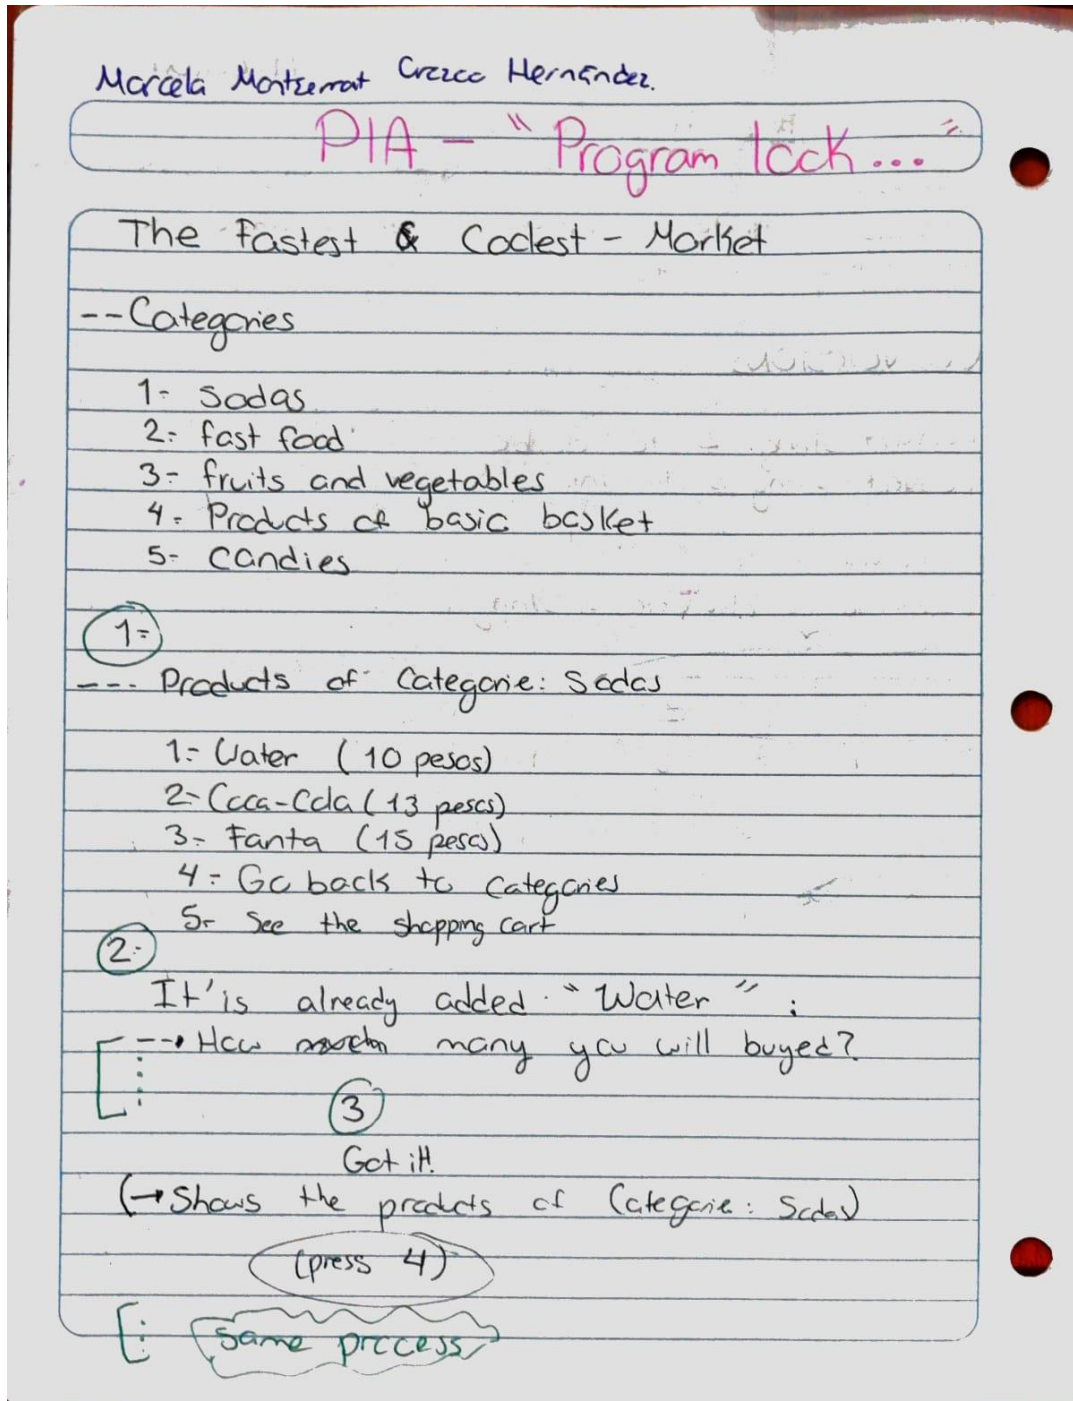 Marcela Montserrat Hernández.
PIA - "Program look..."
The Fastest & Coolest - Market
-- Categories
1- Sodas
2- fast food
3- fruits and vegetables
4- Products of basic basket
5- Candies
1-
--- Products of Categorie: Sodas
1- Water (10 pesos)
2- Coca-Cola (13 pesos)
3- Fanta (15 pesos)
4- Go back to categories
5- See the shopping cart
2-
It'is already added "Water" :
--→ How many you will buyed?
3
Got it!!
(→ Shows the products of Categorie: Sodas)
(press 4)
[: Same process